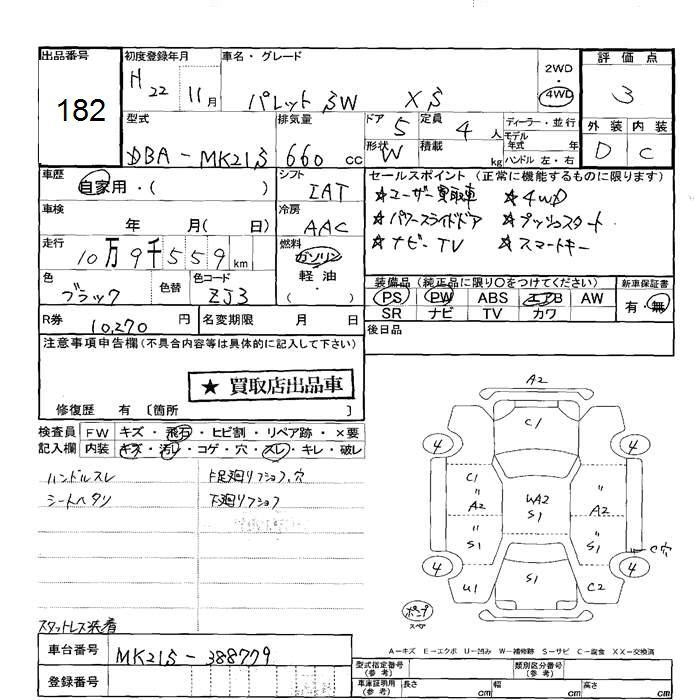 出品番号
182
初度登録年月
H 22 11月
車名・グレード
パレットSW XS
2WD
・
4WD
評価点
3
外装 内装
D C
型式
DBA-MK21S
排気量
660 cc
ドア 5
定員 4 人
形状 W
積載 kg
ディーラー・並行
モデル
年式 年
ハンドル 左・右
車歴
自家用・( )
シフト
IAT
セールスポイント (正常に機能するものに限ります)
☆ユーザー買取車 ☆4WD
☆パワースライドドア ☆プッシュスタート
☆ナビ-TV ☆スマートキー
車検
年 月( 日)
冷房
AAC
走行
10万9千559km
燃料
ガソリン
軽油
( )
色
ブラック
色替
色コード
ZJ3
装備品 (純正品に限り○をつけてください)
PS PW ABS エアB AW
SR ナビ TV カワ
新車保証書
有・無
R券 10,270 円
名変期限 月 日
後日品
注意事項申告欄(不具合内容等は具体的に記入して下さい)
★ 買取店出品車
修復歴 有 〔箇所 〕
検査員
記入欄
FW キズ・飛石・ヒビ割・リペア跡・×要
内装 キズ・汚レ・コゲ・穴・スレ・キレ・破レ
ハンドルスレ
シートヘタリ
下廻リフショク
スタットレス装着
A2
C1
4 4
C1 A2
〃 A2
WA2
S1
〃 S1
〃 S1
C穴
4 4
U1 S1 C2
ポンプ
スペア
A-キズ E-エクボ U-凹み W-補修跡 S-サビ C-腐食 XX-交換済
車台番号 MK21S-388779
登録番号
型式指定番号
(参考)
類別区分番号
(参考)
車庫証明用
(参考)
長さ cm 幅 cm 高さ cm